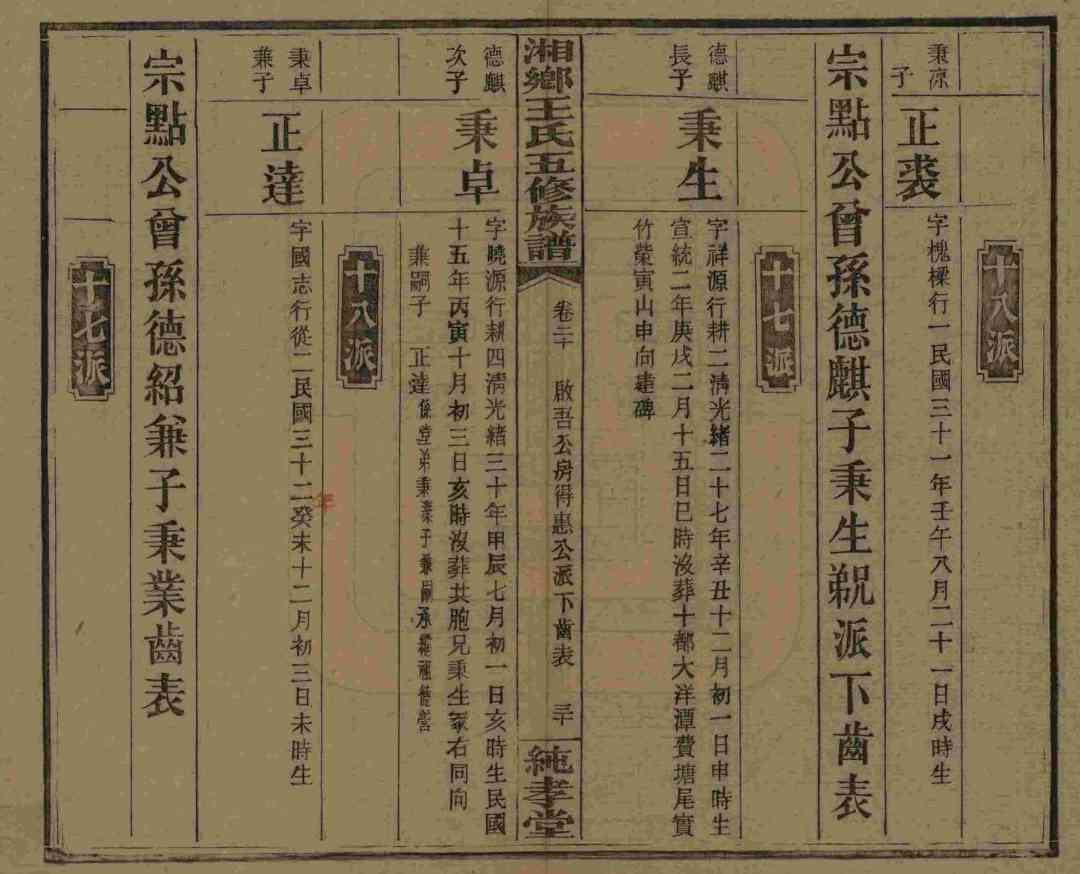 十八派
秉涼
子
正裘
字槐樑行一民國三十一年壬午八月二十一日戌時生
宗點公曾孫德麒子秉生㓉派下齒表
十七派
德麒
長子
秉生
字祥源行耕二清光緒二十七年辛丑十二月初一日申時生
宣統二年庚戌二月十五日巳時沒葬十都大洋潭費塘尾實
竹縈寅山申向建碑
湘鄉王氏五修族譜
卷二十
啟吾公房得惠公派下齒表
三十
純孝堂
德麒
次子
秉卓
字曉源行耕四清光緒三十年甲辰七月初一日亥時生民國
十五年丙寅十月初三日亥時沒葬共胞兄秉生冢右同向
兼嗣子 正達係堂弟秉業子兼嗣承
十八派
秉卓
兼子
正達
字國志行從二民國三十二年癸未十二月初三日未時生
宗點公曾孫德紹兼子秉業齒表
十七派